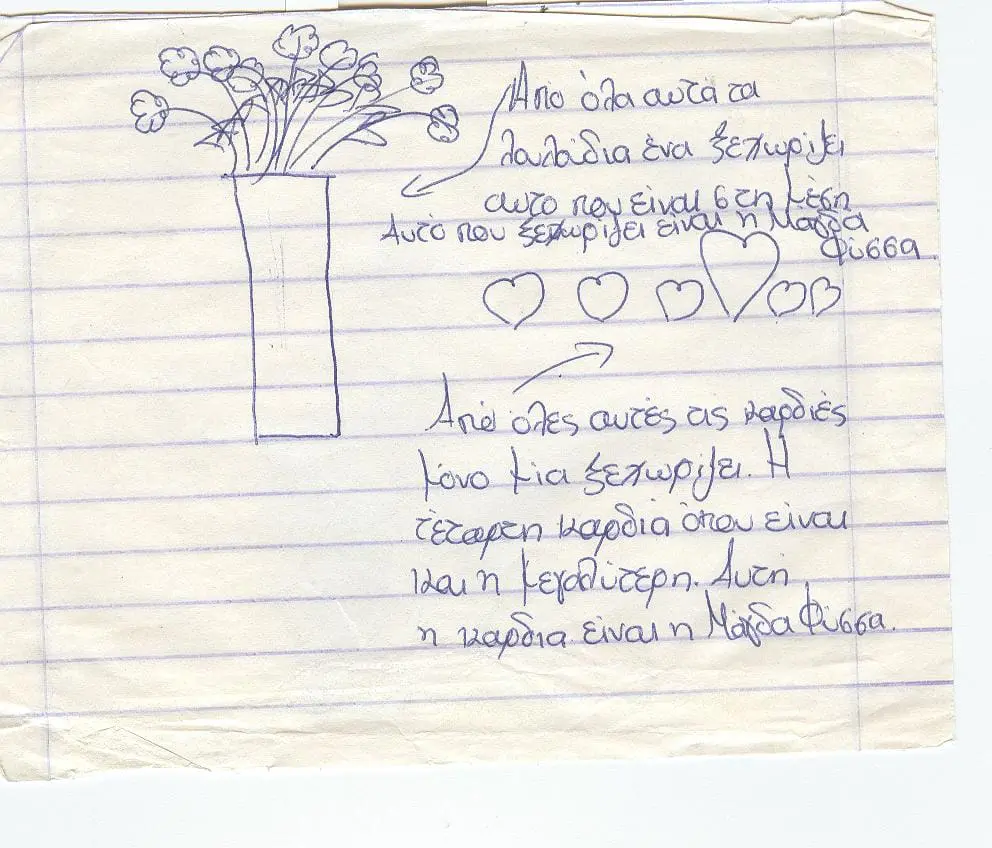 Από όλα αυτά τα
λαλάδια ένα ξεχωρίζει
αυτο που είναι στη μέση
Αυτό που ξεχωρίζει είναι η Μαγδα
Φύσσα.
Από όλες αυτές τις καρδιές
μόνο μία ξεχωρίζει. Η
τέταρτη καρδιά όπου είναι
και η μεγαλύτερη. Αυτή
η καρδια είναι η Μάγδα Φύσσα.